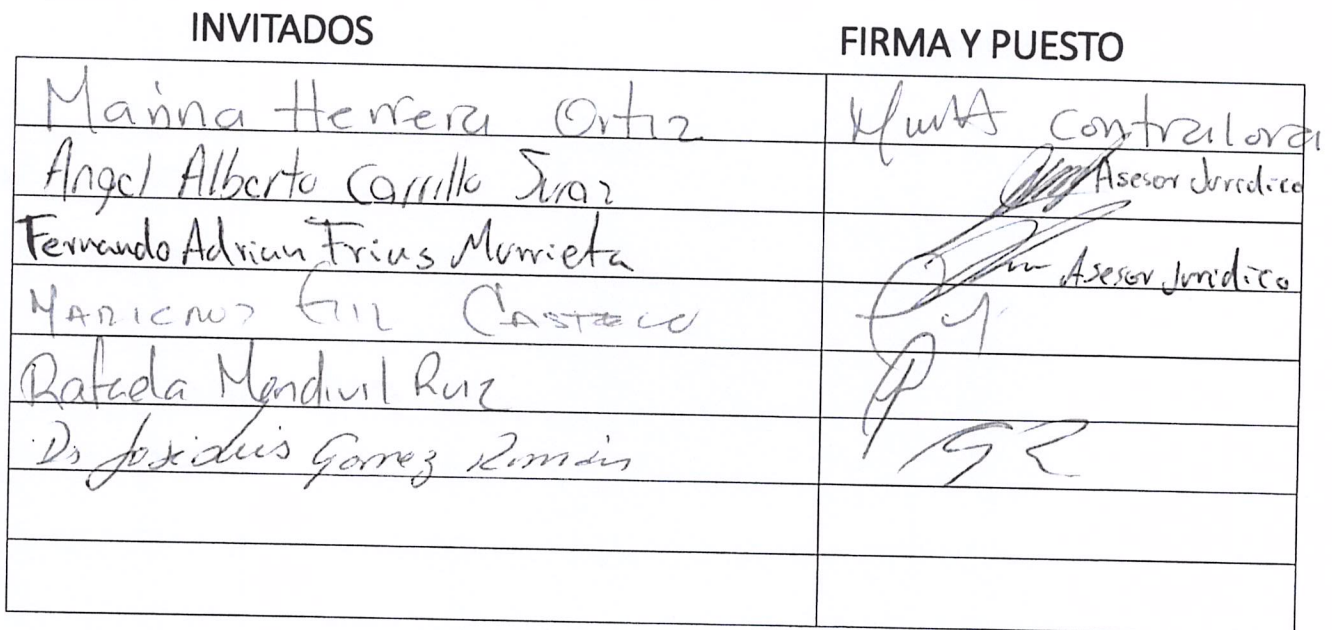 INVITADOS FIRMA Y PUESTO
Marina Herrera Ortiz contralora
Angel Alberto Carrillo Asesor Juridico
Fernando Adrian Frias Murrieta Asesor Juridico
MARICRUZ GIL CASTELO
Rafaela Mendivil Ruiz
Dr Jose Luis Gomez Román